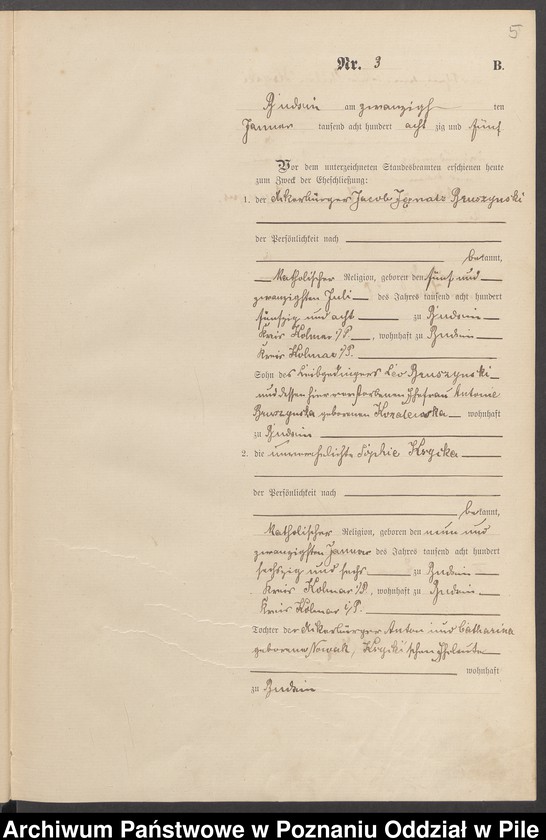 5
Nr. 3
B.
Budsin am zwanzigsten
Januar tausend acht hundert acht zig und fünf
Vor dem unterzeichneten Standesbeamten erschienen heute
zum Zweck der Eheschließung:
1. der Ackerbürger Jacob Ignatz Bruszynski
der Persönlichkeit nach
bekannt,
katholischer Religion, geboren den fünf und
zwanzigsten Juli des Jahres tausend acht hundert
fünfzig und acht zu Budsin
Kreis Kolmar i/P., wohnhaft zu Budsin
Kreis Kolmar i/P.
Sohn des Leibgedingers Leo Bruszynski
und dessen hier verstorbenen Ehefrau Antonie
Bruszynska geborenen wohnhaft
zu Budsin
2. die unverehelichte Sophie Krygier
der Persönlichkeit nach
bekannt,
katholischer Religion, geboren den neun und
zwanzigsten Januar des Jahres tausend acht hundert
sechszig und sechs zu Budsin
Kreis Kolmar i/P., wohnhaft zu Budsin
Kreis Kolmar i/P.
Tochter der Ackerbürger Anton und Catharina
geborene Nowak, schen Eheleute
wohnhaft
zu Budsin
Archiwum Państwowe w Poznaniu Oddział w Pile